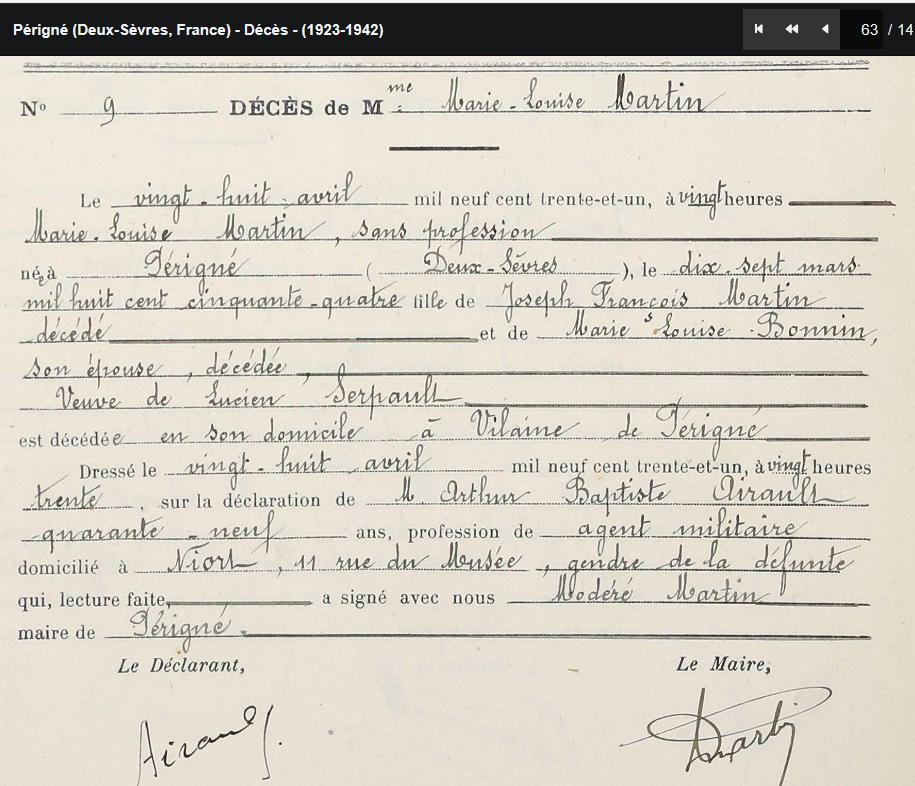 Périgné (Deux-Sèvres, France) - Décès - (1923-1942)
63 / 14
N° 9 DÉCÈS de Mme Marie-Louise Martin
Le vingt-huit avril mil neuf cent trente-et-un, à vingt heures
Marie-Louise Martin, sans profession
née à Périgné (Deux-Sèvres), le dix-sept mars
mil huit cent cinquante-quatre fille de Joseph François Martin
décédé et de Marie Louise Bonnin,
son épouse, décédée,
Veuve de Lucien Serpault
est décédée en son domicile à Vilaine de Périgné
Dressé le vingt-huit avril mil neuf cent trente-et-un, à vingt heures
trente, sur la déclaration de M. Arthur Baptiste Airault
quarante-neuf ans, profession de agent militaire
domicilié à Niort, 11 rue du Musée, gendre de la défunte
qui, lecture faite, a signé avec nous Modéré Martin
maire de Périgné.
Le Déclarant, Le Maire,
Airault Martin